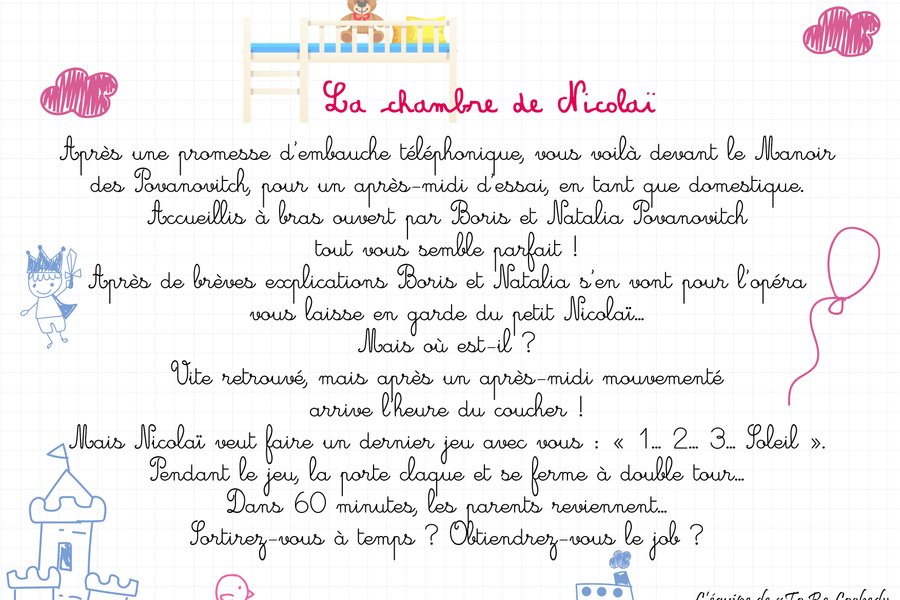 La chambre de Nicolaï
Après une promesse d'embauche téléphonique, vous voilà devant le Manoir
des Povanovitch, pour un après-midi d'essai, en tant que domestique.
Accueillis à bras ouvert par Boris et Natalia Povanovitch
tout vous semble parfait !
Après de brèves explications Boris et Natalia s'en vont pour l'opéra
vous laisse en garde du petit Nicolaï...
Mais où est-il ?
Vite retrouvé, mais après un après-midi mouvementé
arrive l'heure du coucher !
Mais Nicolaï veut faire un dernier jeu avec vous : « 1... 2... 3... Soleil ».
Pendant le jeu, la porte claque et se ferme à double tour...
Dans 60 minutes, les parents reviennent...
Sortirez-vous à temps ? Obtiendrez-vous le job ?
L'équipe de «To Be